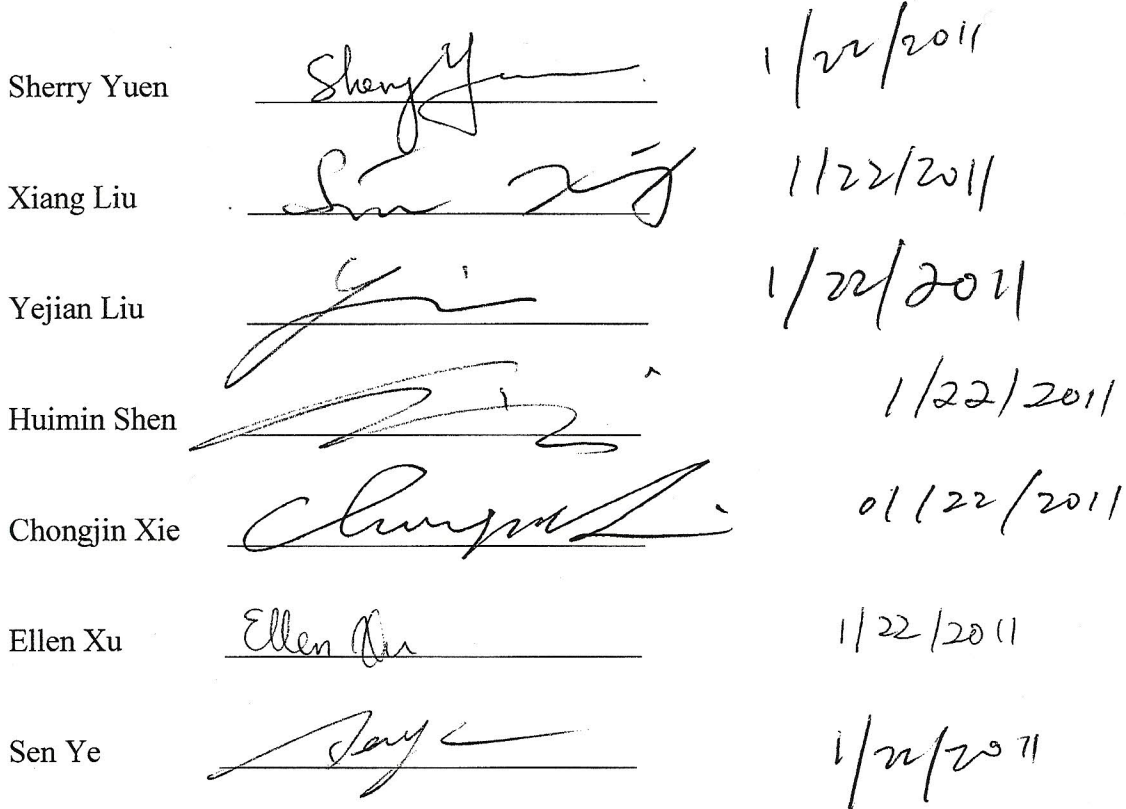 Sherry Yuen Sherry Yuen 1/22/2011
Xiang Liu 1/22/2011
Yejian Liu 1/22/2011
Huimin Shen 1/22/2011
Chongjin Xie 01/22/2011
Ellen Xu Ellen Xu 1/22/2011
Sen Ye Sen Ye 1/22/2011